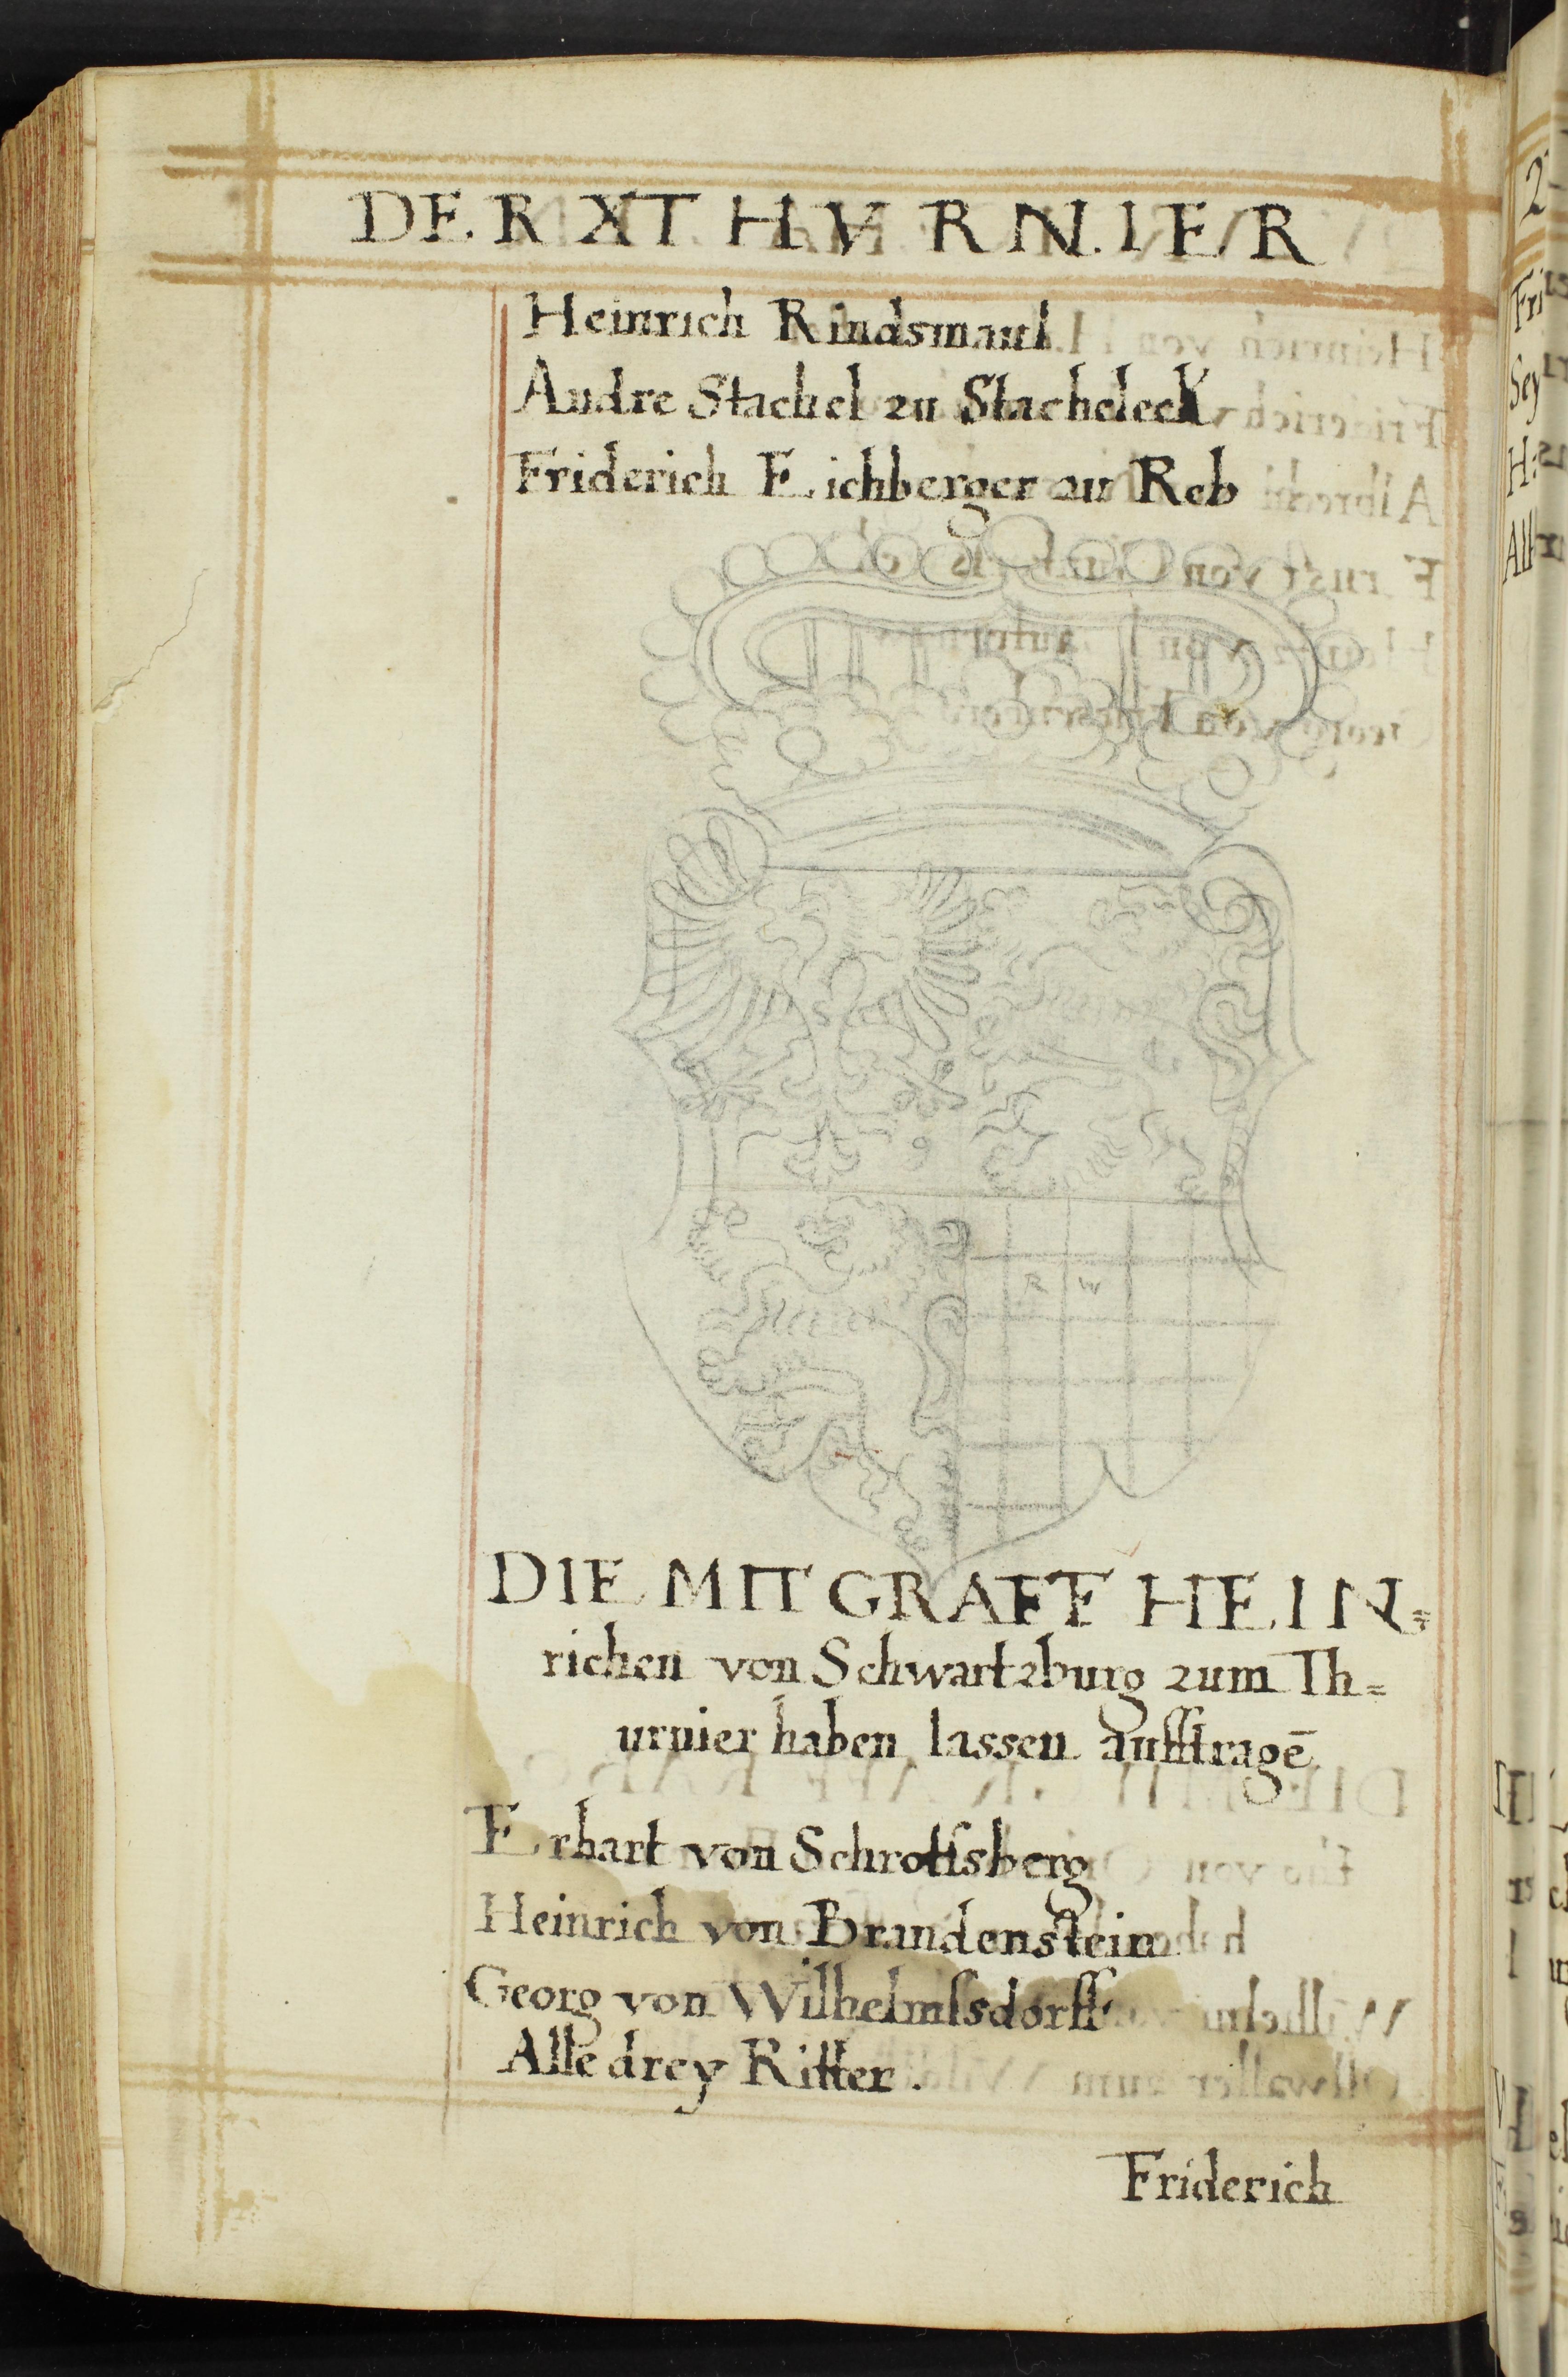 DER X THVRNIER
Heinrich Rindsmaul
Andre Stachel zu Stacheleck
Friderich Eichberger zu Reb
R W
DIE MIT GRAFF HEIN=
richen von Schwartzburg zum Th=
urnier haben lassen aufftragē
Erhart von Schrottsberg
Heinrich von Brandenstein
Georg von Wilhelmssdorff
Alle drey Ritter.
Friderich